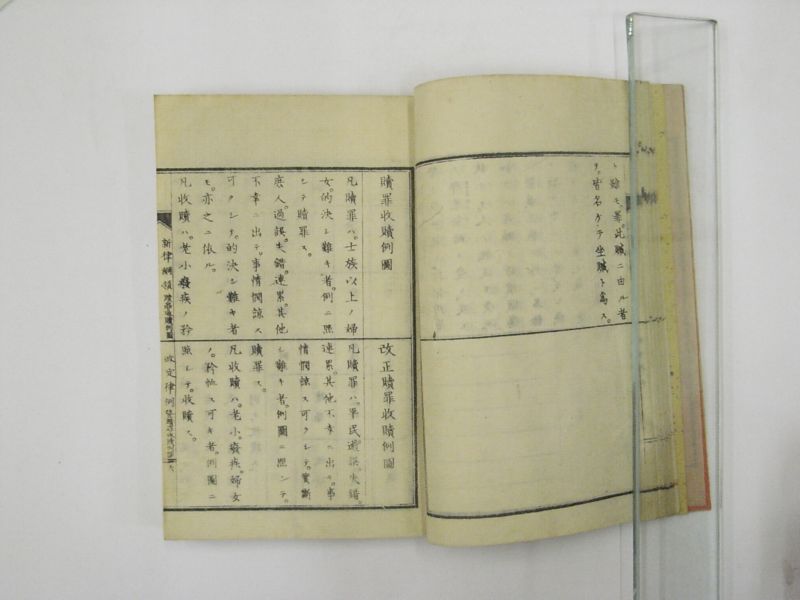 ト雖モ。罪此贓ニ由ル者
ナ。皆名ケテ坐贓ト為ス。
贖罪收贖例圖
凡贖罪ハ。士族以上ノ婦
女。的決シ難キ者。例ニ照
シテ贖罪ス。
庶人。過誤。失錯。連累。其他
不幸ニ出テ。事情憫諒ス
可クシテ。的決シ難キ者
モ。亦之ニ依ル。
凡收贖ハ。老小癈疾ノ矜
新律綱領
改正贖罪收贖例圖
凡贖罪ハ。平民過誤。失錯。
連累。其他不幸ニ出テ。事
情憫諒ス可クシテ。實斷
シ難キ者。例圖ニ照シテ。
贖罪ス。
凡收贖ハ。老小。癈疾。婦女
ノ。矜恤ス可キ者。例圖ニ
照シテ。收贖ス。
改定律例